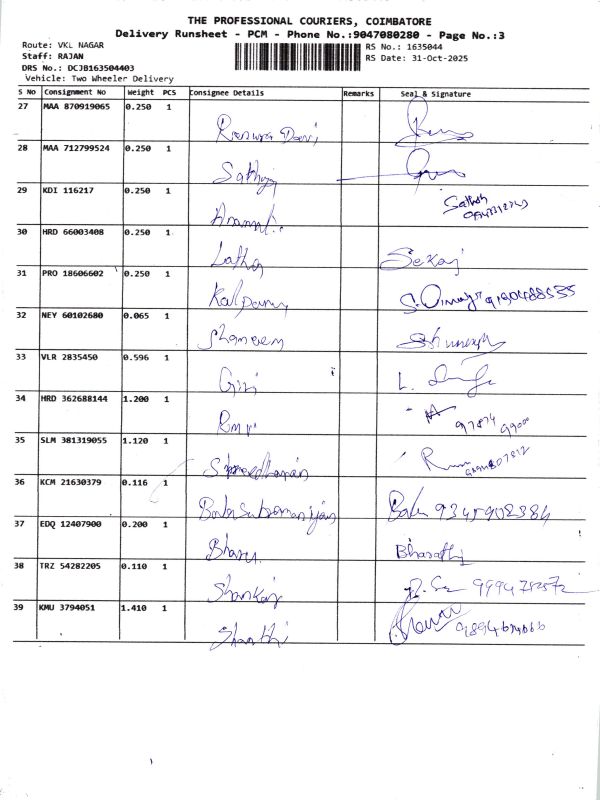 THE PROFESSIONAL COURIERS, COIMBATORE
Delivery Runsheet - PCM - Phone No.:9047080280 - Page No.:3
Route: VKL NAGAR RS No.: 1635044
Staff: RAJAN RS Date: 31-Oct-2025
DRS No.: DCJB163504403
Vehicle: Two Wheeler Delivery
S No Consignment No Weight PCS Consignee Details Remarks Seal & Signature
27 MAA 870919065 0.250 1
28 MAA 712799524 0.250 1
Sathya
29 KDI 116217 0.250 1
Anand Sathish
30 HRD 66003408 0.250 1
Latha Sekar
31 PRO 18606602 0.250 1
Kalpana
32 NEY 60102680 0.065 1
Shameem
33 VLR 2835450 0.596 1
Giri
34 HRD 362688144 1.200 1
97874 99000
35 SLM 381319055 1.120 1
Shreedharan
36 KCM 21630379 0.116 1
Balasubramaniyam Bala 9345902384
37 EDQ 12407900 0.200 1
Bharathi
38 TRZ 54282205 0.110 1
Shankar
39 KMU 3794051 1.410 1
Shanthi